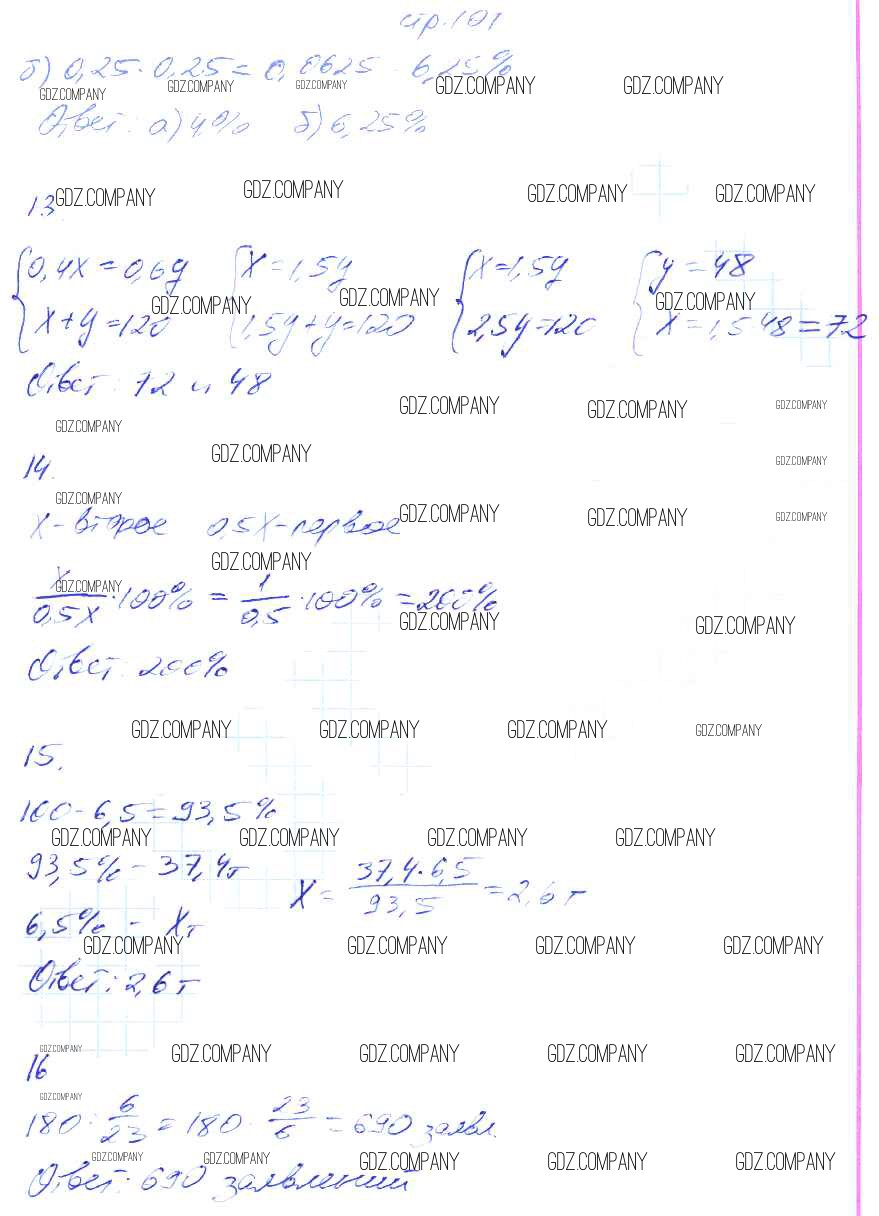 стр. 101
б) 0,25 · 0,25 = 0,0625 6,25%
GDZ.COMPANY GDZ.COMPANY GDZ.COMPANY GDZ.COMPANY GDZ.COMPANY
Ответ: а) 4% б) 6,25%
13. GDZ.COMPANY GDZ.COMPANY GDZ.COMPANY GDZ.COMPANY
{0,4x = 0,6y {x = 1,5y {x = 1,5y {y = 48
GDZ.COMPANY GDZ.COMPANY GDZ.COMPANY
x + y = 120 1,5y + y = 120 2,5y = 120 x = 1,5 48 = 72
Ответ: 72 и 48
GDZ.COMPANY GDZ.COMPANY GDZ.COMPANY
GDZ.COMPANY GDZ.COMPANY
14. GDZ.COMPANY
GDZ.COMPANY GDZ.COMPANY GDZ.COMPANY GDZ.COMPANY
x - второе 0,5x - первое
GDZ.COMPANY
GDZ.COMPANY
x/0,5x · 100% = 1/0,5 · 100% = 200%
GDZ.COMPANY GDZ.COMPANY
Ответ: 200%
GDZ.COMPANY GDZ.COMPANY GDZ.COMPANY GDZ.COMPANY
15.
100 - 6,5 = 93,5%
GDZ.COMPANY GDZ.COMPANY GDZ.COMPANY GDZ.COMPANY
93,5% - 37,4т
x = 37,4·6,5/93,5 = 2,6 т
6,5% - xт
GDZ.COMPANY GDZ.COMPANY GDZ.COMPANY GDZ.COMPANY
Ответ: 2,6 т
GDZ.COMPANY GDZ.COMPANY GDZ.COMPANY GDZ.COMPANY GDZ.COMPANY
16
GDZ.COMPANY
180 : 6/23 = 180 · 23/6 = 690 заявл.
GDZ.COMPANY GDZ.COMPANY GDZ.COMPANY GDZ.COMPANY GDZ.COMPANY
Ответ: 690 заявлений